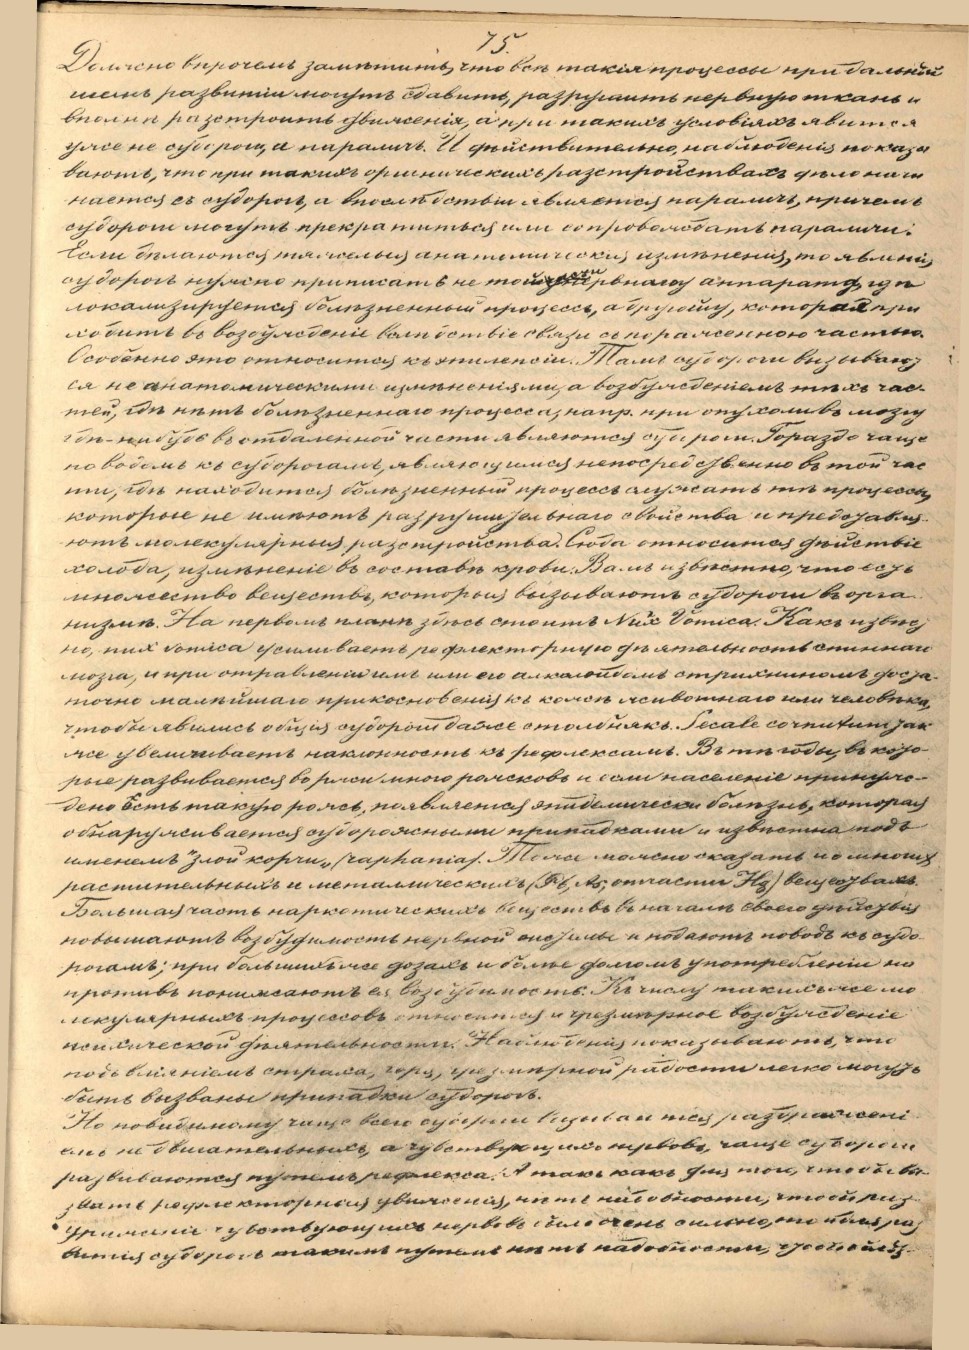 75.
Должно впрочемъ замѣтить, что всѣ такія процессы при дальнѣй
шемъ развитіи могутъ сдавить, разрушить нервную ткань и
вполнѣ разстроить движенія, а при такихъ условіяхъ явится
уже не судороги, а параличъ. И дѣйствительно, наблюденія показы
ваютъ, что при такихъ органическихъ разстройствахъ дѣло начи
нается съ судорогъ, а впослѣдствіи является параличъ, причемъ
судороги могутъ прекратиться или сопровождать параличи.
Если дѣлаются тяжелыя анатомическія измѣненія, то явленія
судорогъ нужно приписать не той части нервнаго аппарата, гдѣ
локализируется болѣзненный процессъ, а другому, которая при
ходитъ въ возбужденіе вслѣдствіе связи съ пораженною частью.
Особенно это относится къ эпилепсіи. Тамъ судороги вызывают
ся не анатомическими измѣненіями, а возбужденіемъ тѣхъ час-
тей, гдѣ нѣтъ болѣзненнаго процесса, напр. при опухоли въ мозгу
гдѣ-нибудь въ отдаленной части являются судороги. Гораздо чаще
поводомъ къ судорогамъ, являющимся непосредственно въ той час
ти, гдѣ находится болѣзненный процессъ служатъ тѣ процессы,
которые не имѣютъ разрушительнаго свойства и представля-
ютъ молекулярныя разстройства. Сюда относится дѣйствіе
холода, измѣненіе въ составѣ крови. Вамъ извѣстно, что есть
множество веществъ, которыя вызываютъ судороги въ орга-
низмѣ. На первомъ планѣ здѣсь стоитъ Nux Vomica. Какъ извѣст
но, nux vomica усиливаетъ рефлекторную дѣятельность спиннаго
мозга, и при отравленіи имъ или его алкалоидомъ стрихниномъ доста-
точно малѣйшаго прикосновенія къ кожѣ животнаго или человѣка,
чтобы явились общія судороги даже столбнякъ. Secale cornutum так
же увеличиваетъ наклонность къ рефлексамъ. Въ тѣ годы, въ кото-
рые развивается во ржи много рожковъ и если населеніе принуж-
дено ѣсть такую рожь, появляется эпидемически болѣзнь, которая
обнаруживается судорожными припадками и извѣстна подъ
именемъ "злой корчи" (raphania). Тоже можно сказать и о многихъ
растительныхъ и металлическихъ (Pb, As, отчасти Hg) веществахъ.
Большая часть наркотическихъ веществъ въ началѣ своего дѣйствія
повышаютъ возбудимость нервной системы и подаютъ поводъ къ судо-
рогамъ; при большихъ же дозахъ и болѣе долгомъ употребленіи на
противъ понижаютъ ея возбудимость. Къ числу такихъ же мо
лекулярныхъ процессовъ относится и чрезмѣрное возбужденіе
психической дѣятельности. Наблюденія показываютъ, что
подъ вліяніемъ страха, горя, чрезмѣрной радости легко могутъ
быть вызваны припадки судорогъ.
Но повидимому чаще всего судороги вызываются раздраженi
емъ не двигательныхъ, а чувствующихъ нервовъ, чаще судороги
развиваются путемъ рефлекса. А такъ какъ для того, чтобы вы
звать рефлекторныя движенія, нѣтъ надобности, чтобы раз-
драженіе чувствующихъ нервовъ было очень сильно, то и для раз
витія судорогъ такимъ путемъ нѣтъ надобности, чтобы